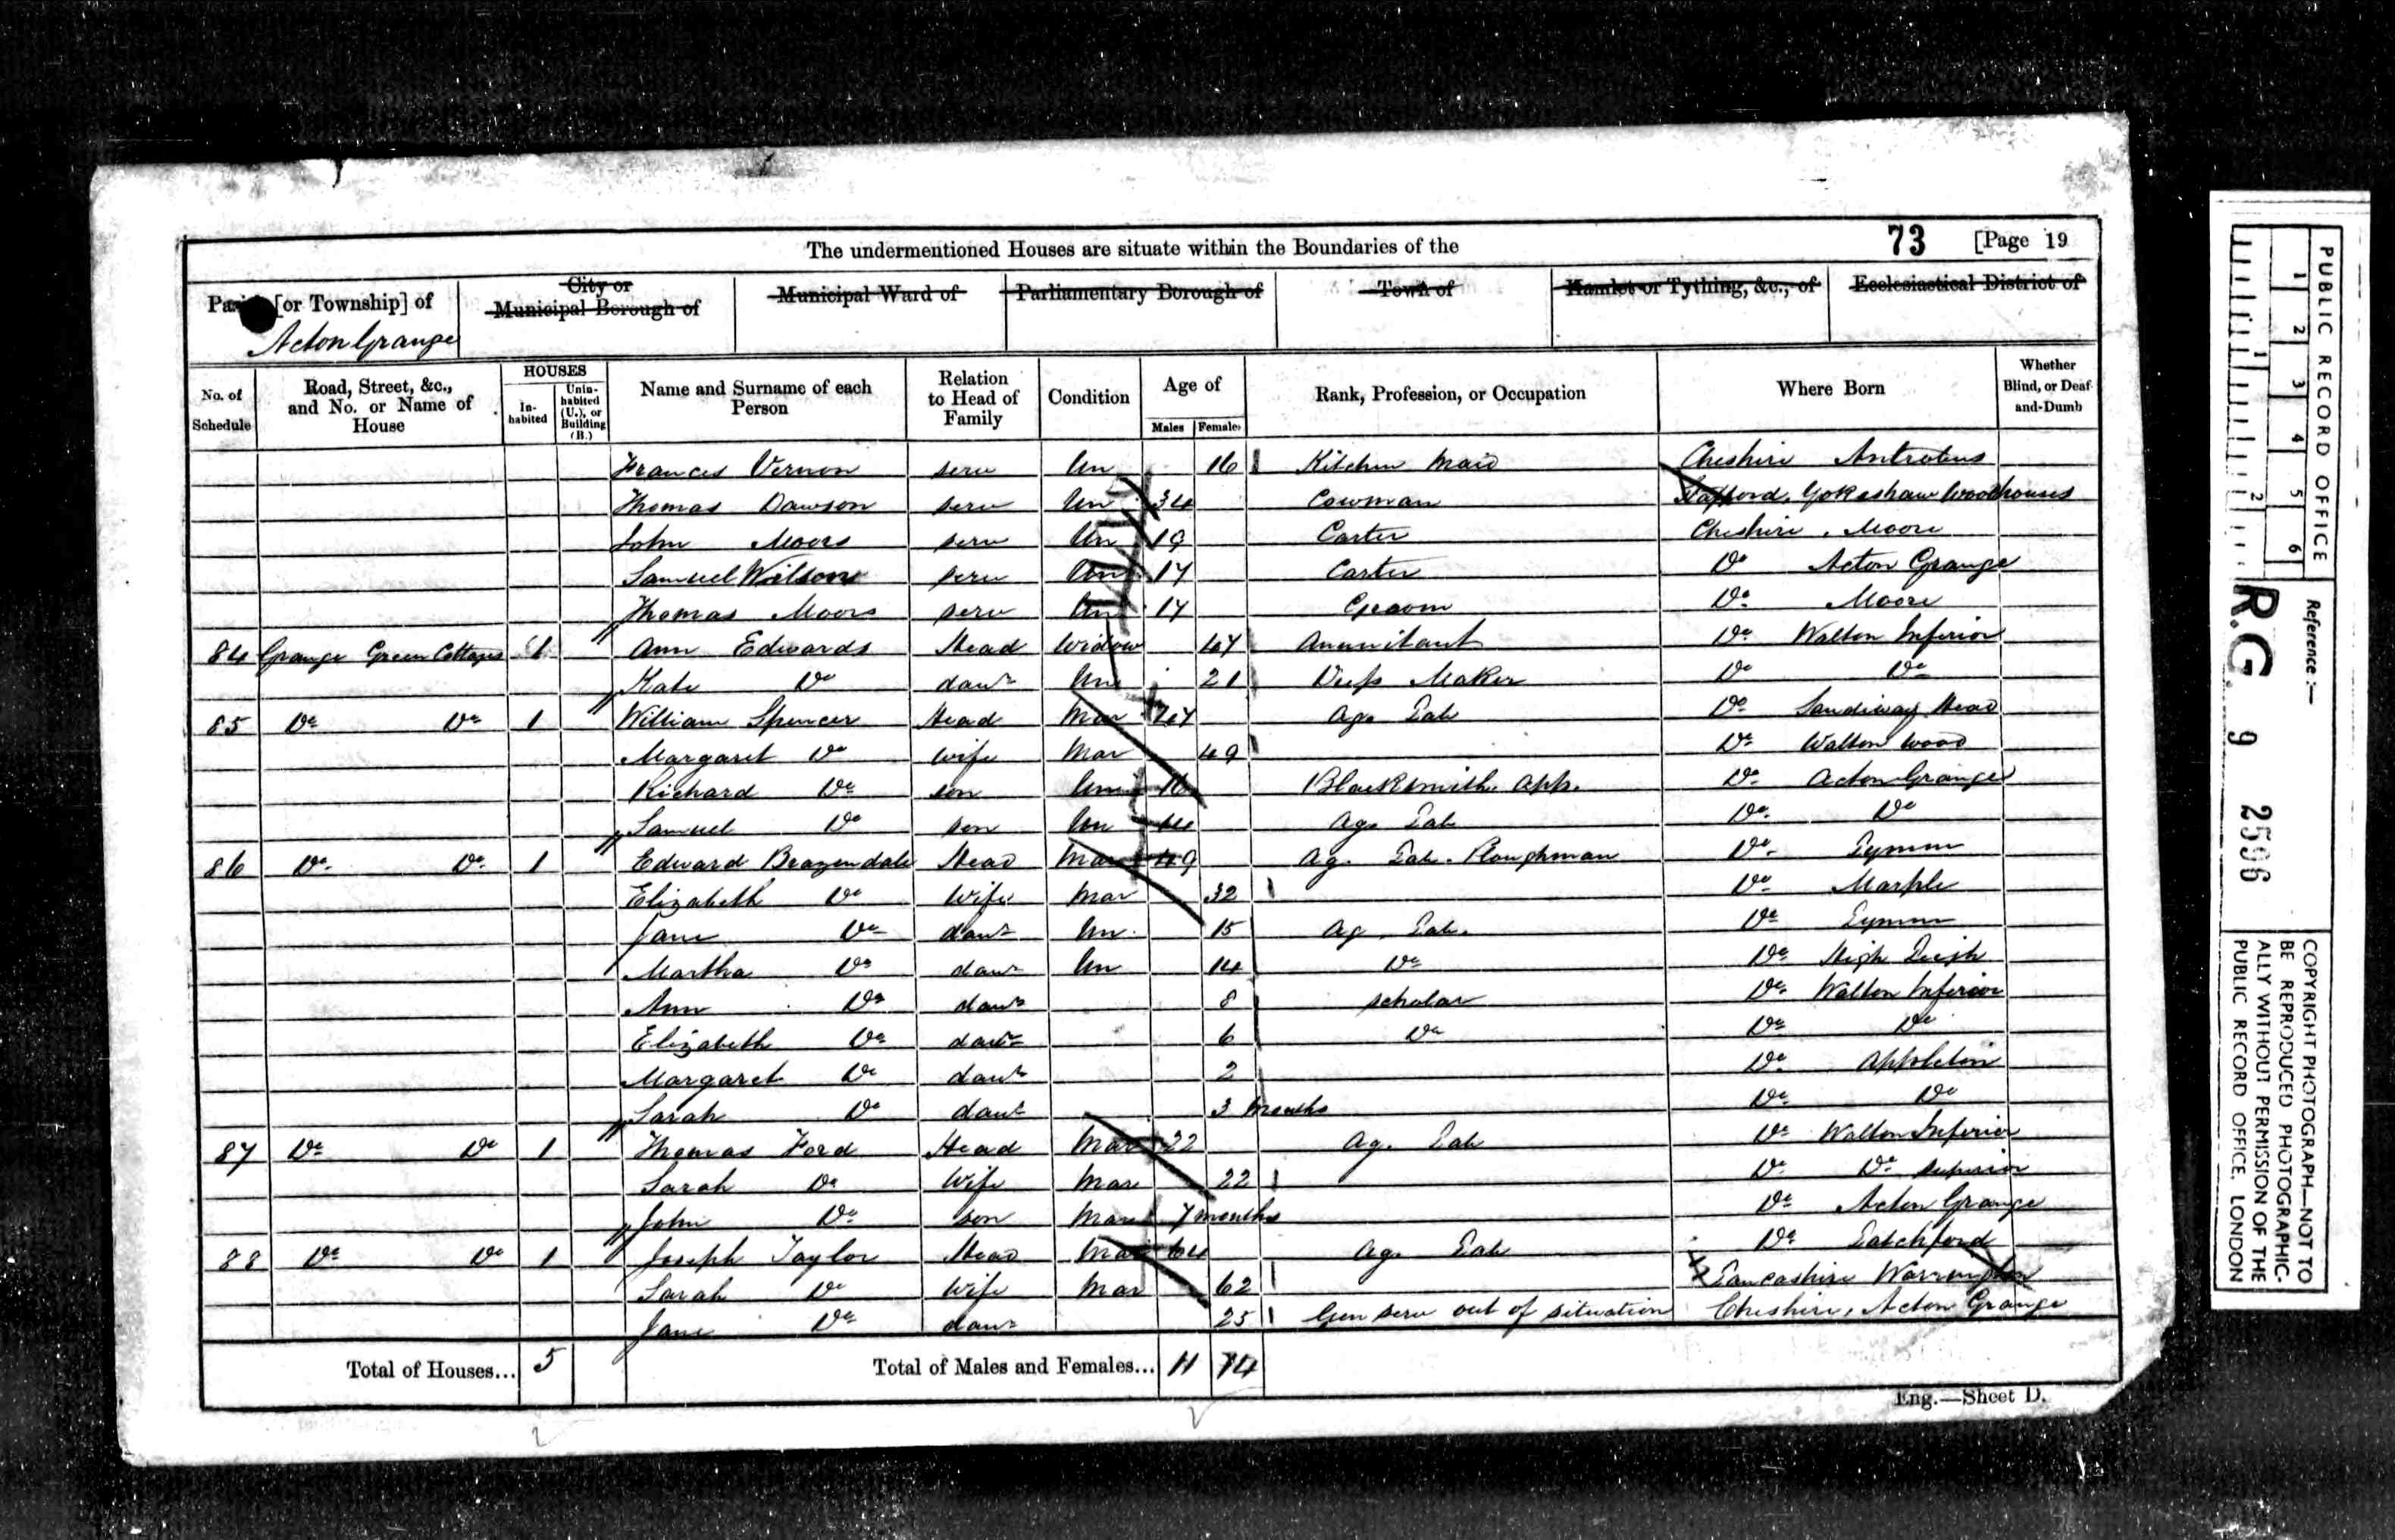 The undermentioned Houses are situate within the Boundaries of the
73 [Page 19
Parish [or Township] of
Acton Grange
City or Municipal Borough of
Municipal Ward of
Parliamentary Borough of
Town of
Hamlet or Tything, &c., of
Ecclesiastical District of
No. of Schedule
Road, Street, &c., and No. or Name of House
HOUSES
In-habited
Unin-habited (U.), or Building (B.)
Name and Surname of each Person
Relation to Head of Family
Condition
Age of
Males
Females
Rank, Profession, or Occupation
Where Born
Whether Blind, or Deaf-and-Dumb
Frances Vernon serv Un 16 Kitchen Maid Cheshire Antrobus
Thomas Dawson serv Un 34 Cowman Stafford, Yokeshaw Woodhouses
John Moors serv Un 19 Carter Cheshire. Moore
Samuel Wilson serv Un 17 Carter Do Acton Grange
Thomas Moors serv Un 17 Groom Do Moore
84 Grange Green Cottages 1 Ann Edwards Head Widow 47 Annuitant Do Walton Inferior
Kate Do daur Un 21 Drefs Maker Do Do
85 Do Do 1 William Spencer Head Mar 47 Ag. Lab Do Sandiway Head
Margaret Do wife Mar 49 Do Walton Wood
Richard Do son Un 16 Blacksmith. App. Do Acton Grange
Samuel Do son Un 14 Ag. Lab Do Do
86 Do Do 1 Edward Brazendale Head Mar 49 Ag. Lab. Ploughman Do Lymm
Elizabeth Do Wife Mar 32 Do Marple
Jane Do daur Un. 15 Ag. Lab. Do Lymm
Martha Do daur Un 14 Do Do High Leigh
Ann Do daur 8 scholar Do Walton Inferior
Elizabeth Do daur 6 Do Do Do
Margaret Do daur 2 Do Appleton
Sarah Do daur 3 Months Do Do
87 Do Do 1 Thomas Ford Head Mar 22 Ag. Lab Do Walton Inferior
Sarah Do Wife Mar 22 Do Do Superior
John Do son Mar 7 months Do Acton Grange
88 Do Do 1 Joseph Taylor Head Mar 64 Ag. Lab Do Latchford
Sarah Do Wife Mar 62 Lancashire Warrington
Jane Do daur 25 Gen serv out of situation Cheshire, Acton Grange
Total of Houses... 5
Total of Males and Females... 11 14
Eng.—Sheet D.
PUBLIC RECORD OFFICE
1 2 3 4 5 6
1 2
Reference :—
R.G. 9 2596
COPYRIGHT PHOTOGRAPH—NOT TO
BE REPRODUCED PHOTOGRAPHIC-
ALLY WITHOUT PERMISSION OF THE
PUBLIC RECORD OFFICE, LONDON